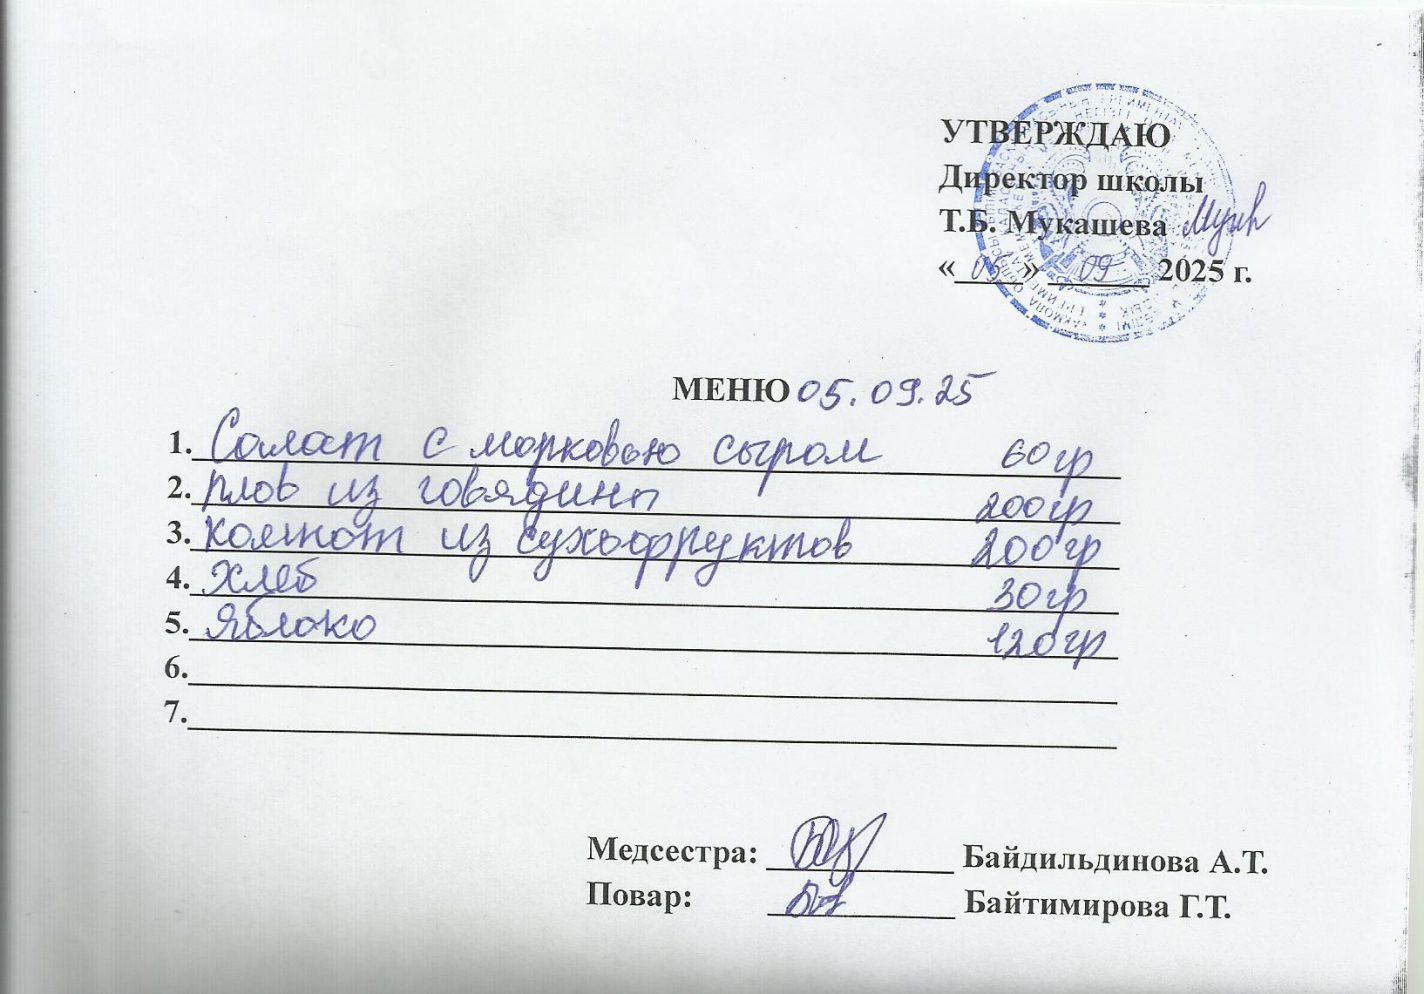 УТВЕРЖДАЮ
Директор школы
Т.Б. Мукашева
«05» 09 2025 г.
МЕНЮ 05.09.25
1. Салат с морковью сыром 60гр
2. плов из говядины 200гр
3. компот из сухофруктов 200гр
4. Хлеб 30гр
5. Яблоко 120гр
6.
7.
Медсестра: Байдильдинова А.Т.
Повар: Байтимирова Г.Т.